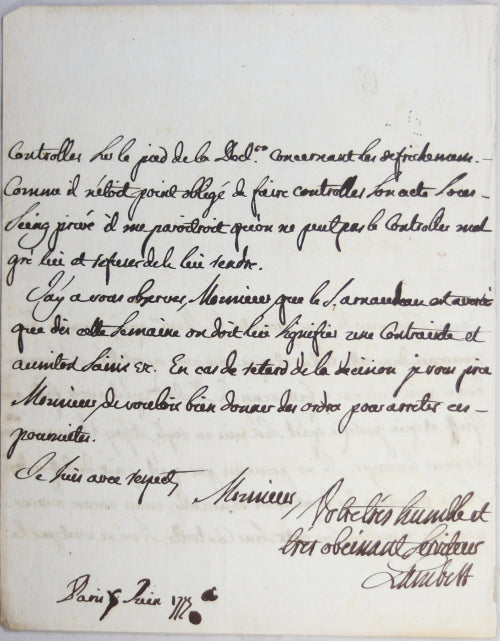 controller sur le pied de la Decl.on concernant les defrichemens.
Comme il n'étoit point obligé de faire controller son acte sous
seing privé il me paroitroit qu'on ne peut pas le controller mal
gré lui et refuser de le lui rendre.
J'ay a vous observer, Monsieur, que le S. arnaudeau est averti
que dès cette semaine on doit lui signifier une contrainte et
ensuite saisie &c. En cas de retard de la decision je vous prie
Monsieur, de vouloir bien donner des ordre pour arreter ces
poursuites.
Je suis avec respect,
Monsieur,
Votre très humble et
tres obéissant serviteur
Lambert
Paris Juin